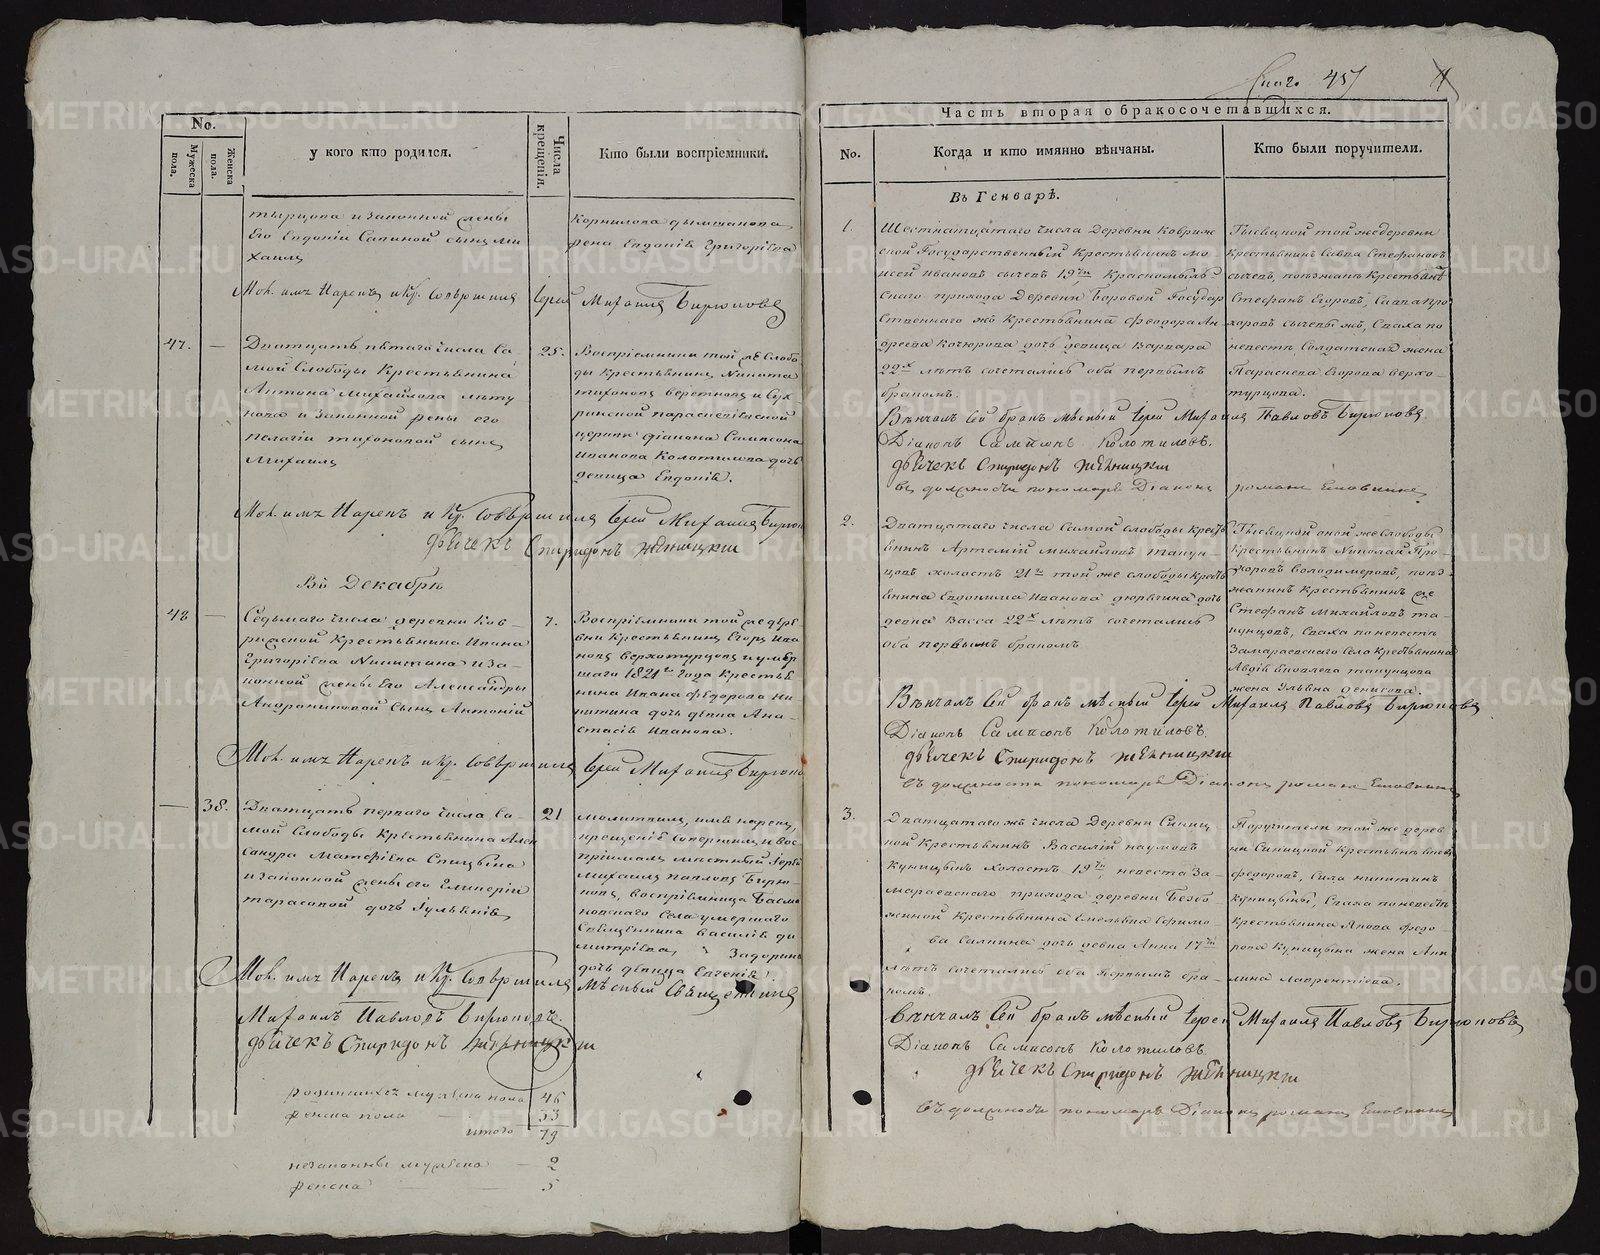 No.
Мужеска пола.
Женска пола.
у кого кто родился.
Числа крещенія.
Кто были воспріемники.
тырцова и законной жены
Его Евдокіи Савиной сынъ Ми
хаилъ
Корнилова
Евдокія Григорьева
Мол. имя Нареклъ и Кр. Совершилъ Іерей Михаилъ Бирюковъ
47. —
Дватцать пятаго числа Са-
мой Слободы Крестьянина
Антона Михайлова
и законной жены его
Пелагіи Тихоновой сынъ
Михаилъ
25.
Воспріемники той же Слобо
ды Крестьянинъ Никита
Тихоновъ
церкви діакона Сампсона
Иванова Колотилова дочь
девица Евдокія.
Мол. имя Нарекъ и Кр. Совершилъ Іерей Михаилъ Бирюк
дьячекъ Спиридонъ
Въ Декабрѣ
48 —
Седьмаго числа деревни Ков-
рижской Крестьянина Ивана
Григорьева Никитина и за-
конной жены Его Александры
Андрониковой сынъ Антоній
7.
Воспріемники той же дере
вни Крестьянинъ Егоръ Ива
новъ Верхотурцовъ и умер
шаго 1821го Года Крестья
нина Ивана Федорова Ни
китина дочь девка Ана-
стасія Иванова.
Мол. имя Нарекъ и Кр. Совершилъ Іерей Михаилъ Бирюко
— 38.
Дватцать перваго числа Са-
мой Слободы Крестьянина Алек
сандра Матфеева Спицына
и законной жены его Гликеріи
Тарасовой дочь Іуліянія
21
Молитвилъ, имя нарекъ,
крещеніе совершилъ и вос
принималъ мѣстный Іерей
Михаилъ Павловъ Бирю-
ковъ, воспріемница Басма
новскаго Села умершаго
Священника Василія Ди
митріева Задорина
дочь девица Евгенія
Мол. имя Нарекъ и Кр. Совершилъ Мѣстный Священникъ
Михаилъ Павловъ Бирюковъ.
дьячекъ Спиридонъ
родившихся мужеска пола 46
женска пола — 33
итого 79
незаконны мужеска — 2
женска — 5
457
Часть вторая о бракосочетавшихся.
No.
Когда и кто имянно вѣнчаны.
Кто были поручители.
Въ Генварѣ.
1.
Шестнатцатаго числа Деревни Коврижс
ской Государственный Крестьянинъ Мо
исей Ивановъ Сычевъ 19ти, Красномыль
скаго прихода Деревни Боровой Государ
ственнаго жъ Крестьянина Феодора Ан-
дреева Кочюрова дочь девица Варвара
22х лѣтъ сочетались оба первымъ
бракомъ.
Тысяцкой той же деревни
Крестьянинъ Савва Стефановъ
Сычевъ, поѣзжанъ Крестьяне
Стефанъ Егоровъ, Савва Про
хоровъ Сычевы жъ, Сваха по
невестѣ Солдатская жена
Параскева Егорова Верхо-
турцова.
Вѣнчалъ Сей бракъ мѣстный Іерей Михаилъ Павловъ Бирюковъ
Діаконъ Сампсонъ Колотиловъ.
дьячекъ Спиридонъ
въ должности пономаря Діаконъ романъ
2.
Дватцатаго числа Самой слободы Кресть
янинъ Артемій Михайловъ Тапун-
цовъ холостъ 21го той же слободы Кресть
янина Евдокима Иванова дочь
девка Васса 22х лѣтъ сочетались
оба первымъ бракомъ
Тысяцкой оной же Слободы
Крестьянинъ Николай Про-
хоровъ Володимеровъ, поѣз
жанинъ Крестьянинъ же
Стефанъ Михайловъ Та-
пунцовъ, Сваха по невестѣ
Замараевскаго Села Крестьянина
Авдія Яковлева Тапунцова
жена Ульяна Денисова.
Вѣнчалъ Сей бракъ мѣстный Іерей Михаилъ Павловъ Бирюковъ
Діаконъ Сампсонъ Колотиловъ.
дьячекъ Спиридонъ
въ должности пономаря Діаконъ романъ
3.
Дватцатаго жъ числа Деревни Синиц
ной Крестьянинъ Василій Наумовъ
Куницынъ холостъ 19ти, невеста За-
мараевскаго прихода деревни Безбо-
жиной Крестьянина Емельяна Ефимо
ва Салнина дочь девка Анна 17ти
лѣтъ сочетались оба Первымъ бра-
комъ.
Поручители той же дерев
ни Синицной Крестьяне
Федоровъ, Сила Никитинъ
Куницыны, Сваха по невестѣ
Крестьянина Якова Федо
рова Куницына жена Аки
лина Лаврентіева.
Вѣнчалъ Сей бракъ мѣстный Іерей Михаилъ Павловъ Бирюковъ
Діаконъ Сампсонъ Колотиловъ.
дьячекъ Спиридонъ
въ должности пономаря Діаконъ романъ
METRIKI.GASO-URAL.RU